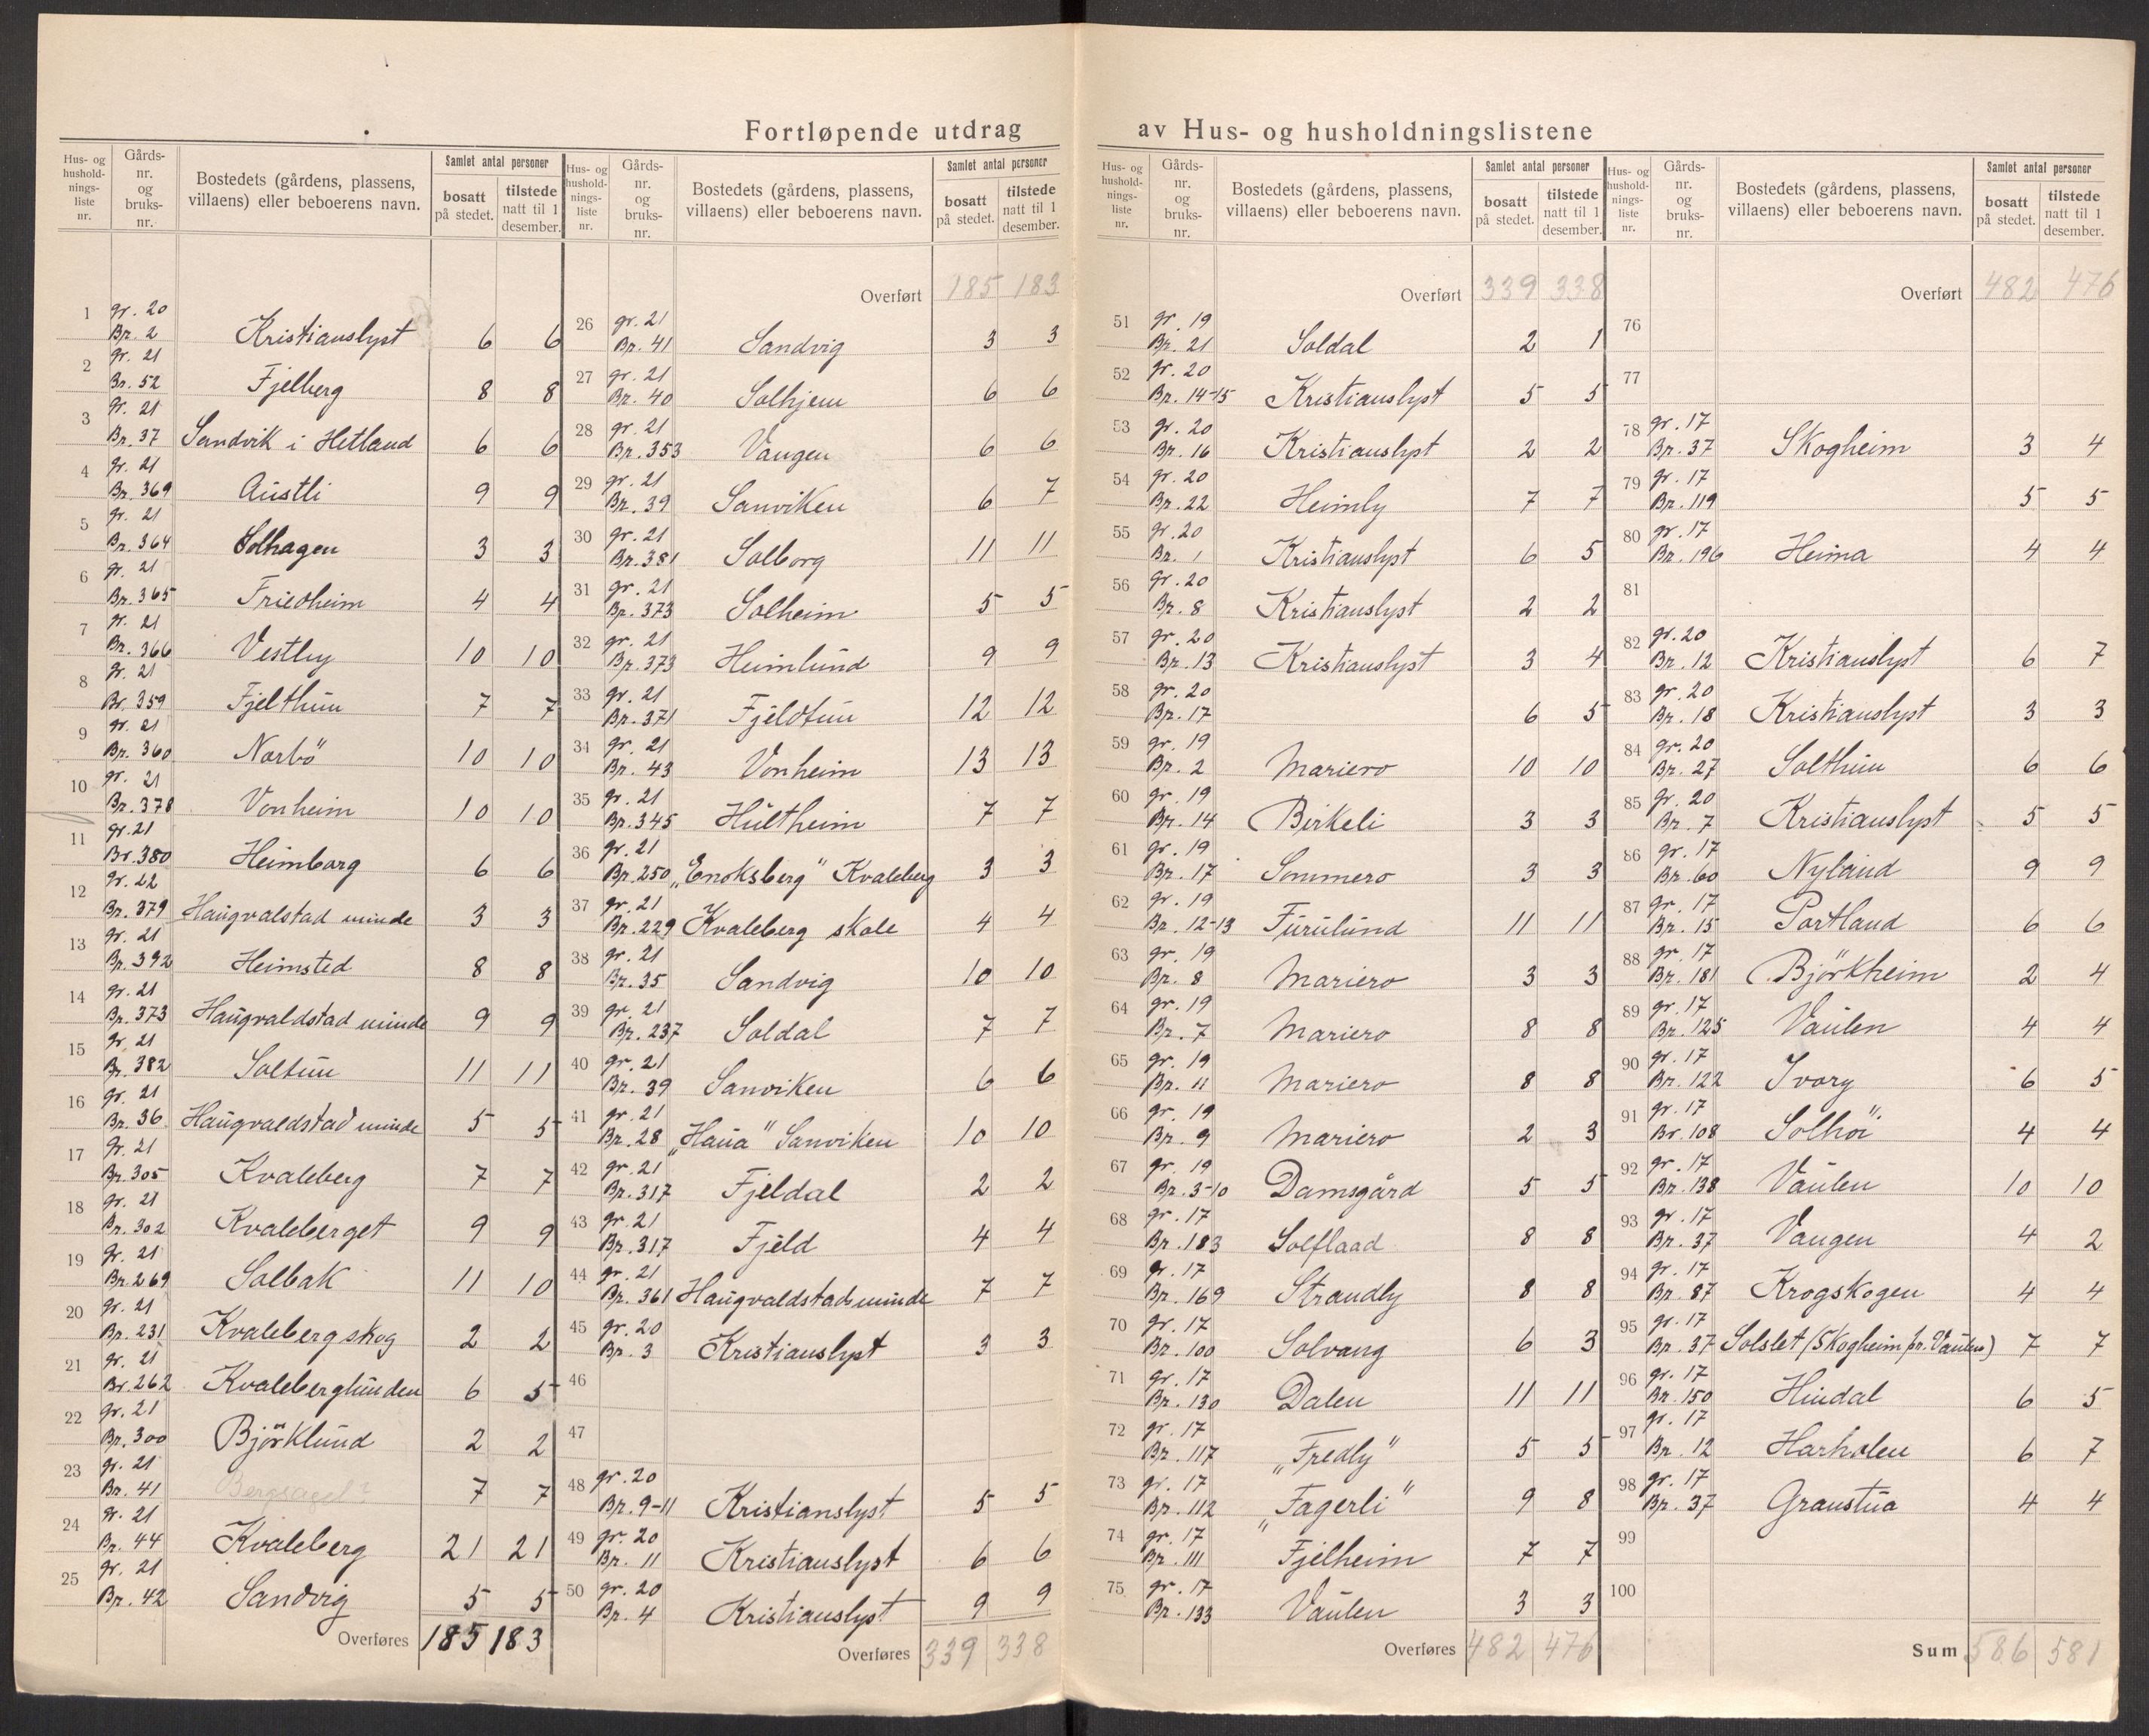 Fortløpende utdrag av Hus- og husholdningslistene
Hus- og hushold-nings-liste nr. | Gårds-nr. og bruks-nr. | Bostedets (gårdens, plassens, villaens) eller beboerens navn. | Samlet antal personer | bosatt på stedet. | tilstede natt til 1 desember.
1 gr. 20 Br. 2 Kristianslyst 6 6
2 gr. 21 Br. 52 Fjelberg 8 8
3 gr. 21 Br. 37 Sandvik i Hetland 6 6
4 gr. 21 Br. 369 Austli 9 9
5 gr. 21 Br. 364 Solhagen 3 3
6 gr. 21 Br. 365 Friedheim 4 4
7 gr. 21 Br. 366 Vestby 10 10
8 gr. 21 Br. 359 Fjelthun 7 7
9 gr. 21 Br. 360 Norbö 10 10
10 gr. 21 Br. 378 Vonheim 10 10
11 gr. 21 Br. 380 Heimborg 6 6
12 gr. 22 Br. 379 Haugvalstad minde 3 3
13 gr. 21 Br. 392 Heimsted 8 8
14 gr. 21 Br. 373 Haugvaldstad minde 9 9
15 gr. 21 Br. 382 Soltun 11 11
16 gr. 21 Br. 36 Haugvaldstad minde 5 5
17 gr. 21 Br. 305 Kvaleberg 7 7
18 gr. 21 Br. 302 Kvaleberget 9 9
19 gr. 21 Br. 269 Solbak 11 10
20 gr. 21 Br. 231 Kvaleberg skog 2 2
21 gr. 21 Br. 262 Kvaleberglunden 6 5
22 gr. 21 Br. 300 Björklund 2 2
23 gr. 21 Br. 41 Bergsagel? 7 7
24 gr. 21 Br. 44 Kvaleberg 21 21
25 gr. 21 Br. 42 Sandvig 5 5
Overføres 185 183
Hus- og hushold-nings-liste nr. | Gårds-nr. og bruks-nr. | Bostedets (gårdens, plassens, villaens) eller beboerens navn. | Samlet antal personer | bosatt på stedet. | tilstede natt til 1 desember.
Overført 185 183
26 gr. 21 Br. 41 Sandvig 3 3
27 gr. 21 Br. 40 Solhjem 6 6
28 gr. 21 Br. 353 Vangen 6 6
29 gr. 21 Br. 39 Sanviken 6 7
30 gr. 21 Br. 381 Solborg 11 11
31 gr. 21 Br. 373 Solheim 5 5
32 gr. 21 Br. 373 Heimlund 9 9
33 gr. 21 Br. 371 Fjeldtun 12 12
34 gr. 21 Br. 43 Vonheim 13 13
35 gr. 21 Br. 345 Hultheim 7 7
36 gr. 21 Br. 250 „Enoksberg" Kvaleberg 3 3
37 gr. 21 Br. 229 Kvaleberg skole 4 4
38 gr. 21 Br. 35 Sandvig 10 10
39 gr. 21 Br. 237 Soldal 7 7
40 gr. 21 Br. 39 Sanviken 6 6
41 gr. 21 Br. 28 „Haua" Sanviken 10 10
42 gr. 21 Br. 317 Fjeldal 2 2
43 gr. 21 Br. 317 Fjeld 4 4
44 gr. 21 Br. 361 Haugvaldstadsminde 7 7
45 gr. 20 Br. 3 Kristianslyst 3 3
46
47
48 gr. 20 Br. 9-11 Kristianslyst 5 5
49 gr. 20 Br. 11 Kristianslyst 6 6
50 gr. 20 Br. 4 Kristianslyst 9 9
Overføres 339 338
Hus- og hushold-nings-liste nr. | Gårds-nr. og bruks-nr. | Bostedets (gårdens, plassens, villaens) eller beboerens navn. | Samlet antal personer | bosatt på stedet. | tilstede natt til 1 desember.
Overført 339 338
51 gr. 19 Br. 21 Soldal 2 1
52 gr. 20 Br. 14-15 Kristianslyst 5 5
53 gr. 20 Br. 16 Kristianslyst 2 2
54 gr. 20 Br. 22 Heimly 7 7
55 gr. 20 Br. 1 Kristianslyst 6 5
56 gr. 20 Br. 8 Kristianslyst 2 2
57 gr. 20 Br. 13 Kristianslyst 3 4
58 gr. 20 Br. 17 6 5
59 gr. 19 Br. 2 Mariero 10 10
60 gr. 19 Br. 14 Birkeli 3 3
61 gr. 19 Br. 17 Sommero 3 3
62 gr. 19 Br. 12-13 Furulund 11 11
63 gr. 19 Br. 8 Mariero 3 3
64 gr. 19 Br. 7 Mariero 8 8
65 gr. 19 Br. 11 Mariero 8 8
66 gr. 19 Br. 9 Mariero 2 3
67 gr. 19 Br. 3-10 Damsgård 5 5
68 gr. 17 Br. 183 Solflaad 8 8
69 gr. 17 Br. 169 Strandly 8 8
70 gr. 17 Br. 100 Solvang 6 3
71 gr. 17 Br. 130 Dalen 11 11
72 gr. 17 Br. 117 „Fredly" 5 5
73 gr. 17 Br. 112 „Fagerli" 9 8
74 gr. 17 Br. 111 Fjelheim 7 7
75 gr. 17 Br. 133 Vaulen 3 3
Overføres 482 476
Hus- og hushold-nings-liste nr. | Gårds-nr. og bruks-nr. | Bostedets (gårdens, plassens, villaens) eller beboerens navn. | Samlet antal personer | bosatt på stedet. | tilstede natt til 1 desember.
Overført 482 476
76
77
78 gr. 17 Br. 37 Skogheim 3 4
79 gr. 17 Br. 119 5 5
80 gr. 17 Br. 196 Heima 4 4
81
82 gr. 20 Br. 12 Kristianslyst 6 7
83 gr. 20 Br. 18 Kristianslyst 3 3
84 gr. 20 Br. 27 Solthun 6 6
85 gr. 20 Br. 7 Kristianslyst 5 5
86 gr. 17 Br. 60 Nyland 9 9
87 gr. 17 Br. 15 Portland 6 6
88 gr. 17 Br. 181 Björkheim 2 4
89 gr. 17 Br. 125 Vaulen 4 4
90 gr. 17 Br. 122 Ivory 6 5
91 gr. 17 Br. 108 Solhöi 4 4
92 gr. 17 Br. 138 Vaulen 10 10
93 gr. 17 Br. 37 Vangen 4 2
94 gr. 17 Br. 87 Krogskogen 4 4
95 gr. 17 Br. 37 Solslet (Skogheim pr. Vaulen) 7 7
96 gr. 17 Br. 150 Hindal 6 5
97 gr. 17 Br. 12 Harholen 6 7
98 gr. 17 Br. 37 Graustua 4 4
99
100
Sum 586 581